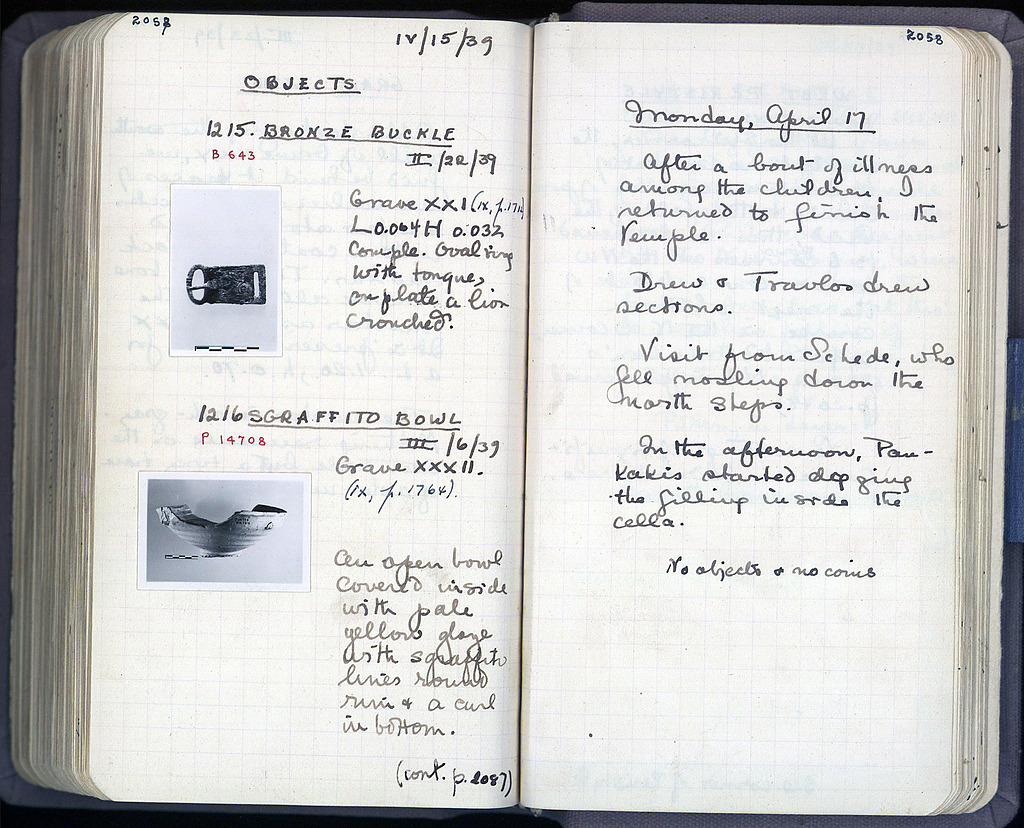 2058
IV/15/39
OBJECTS
1215. BRONZE BUCKLE
B 643
II/22/39
Grave XXI (IX, p.
L 0.064 H 0.032
Comple. Oval ring
with tongue,
on plate a lion
crouched.
1216 SGRAFFITO BOWL
P 14708
III/6/39
Grave XXXII.
(IX, p. 1764).
An open bowl
covered inside
with pale
yellow glaze
with sgraffito
lines round
rim & a curl
in bottom.
(cont. p. 2087)
2058
Monday, April 17
After a bout of illness
among the children, I
returned to finish the
Temple.
Drew & Travlos drew
sections.
Visit from Schede, who
fell down the
north steps.
In the afternoon, Pan-
kakis started digging
the filling inside the
cella.
No objects & no coins